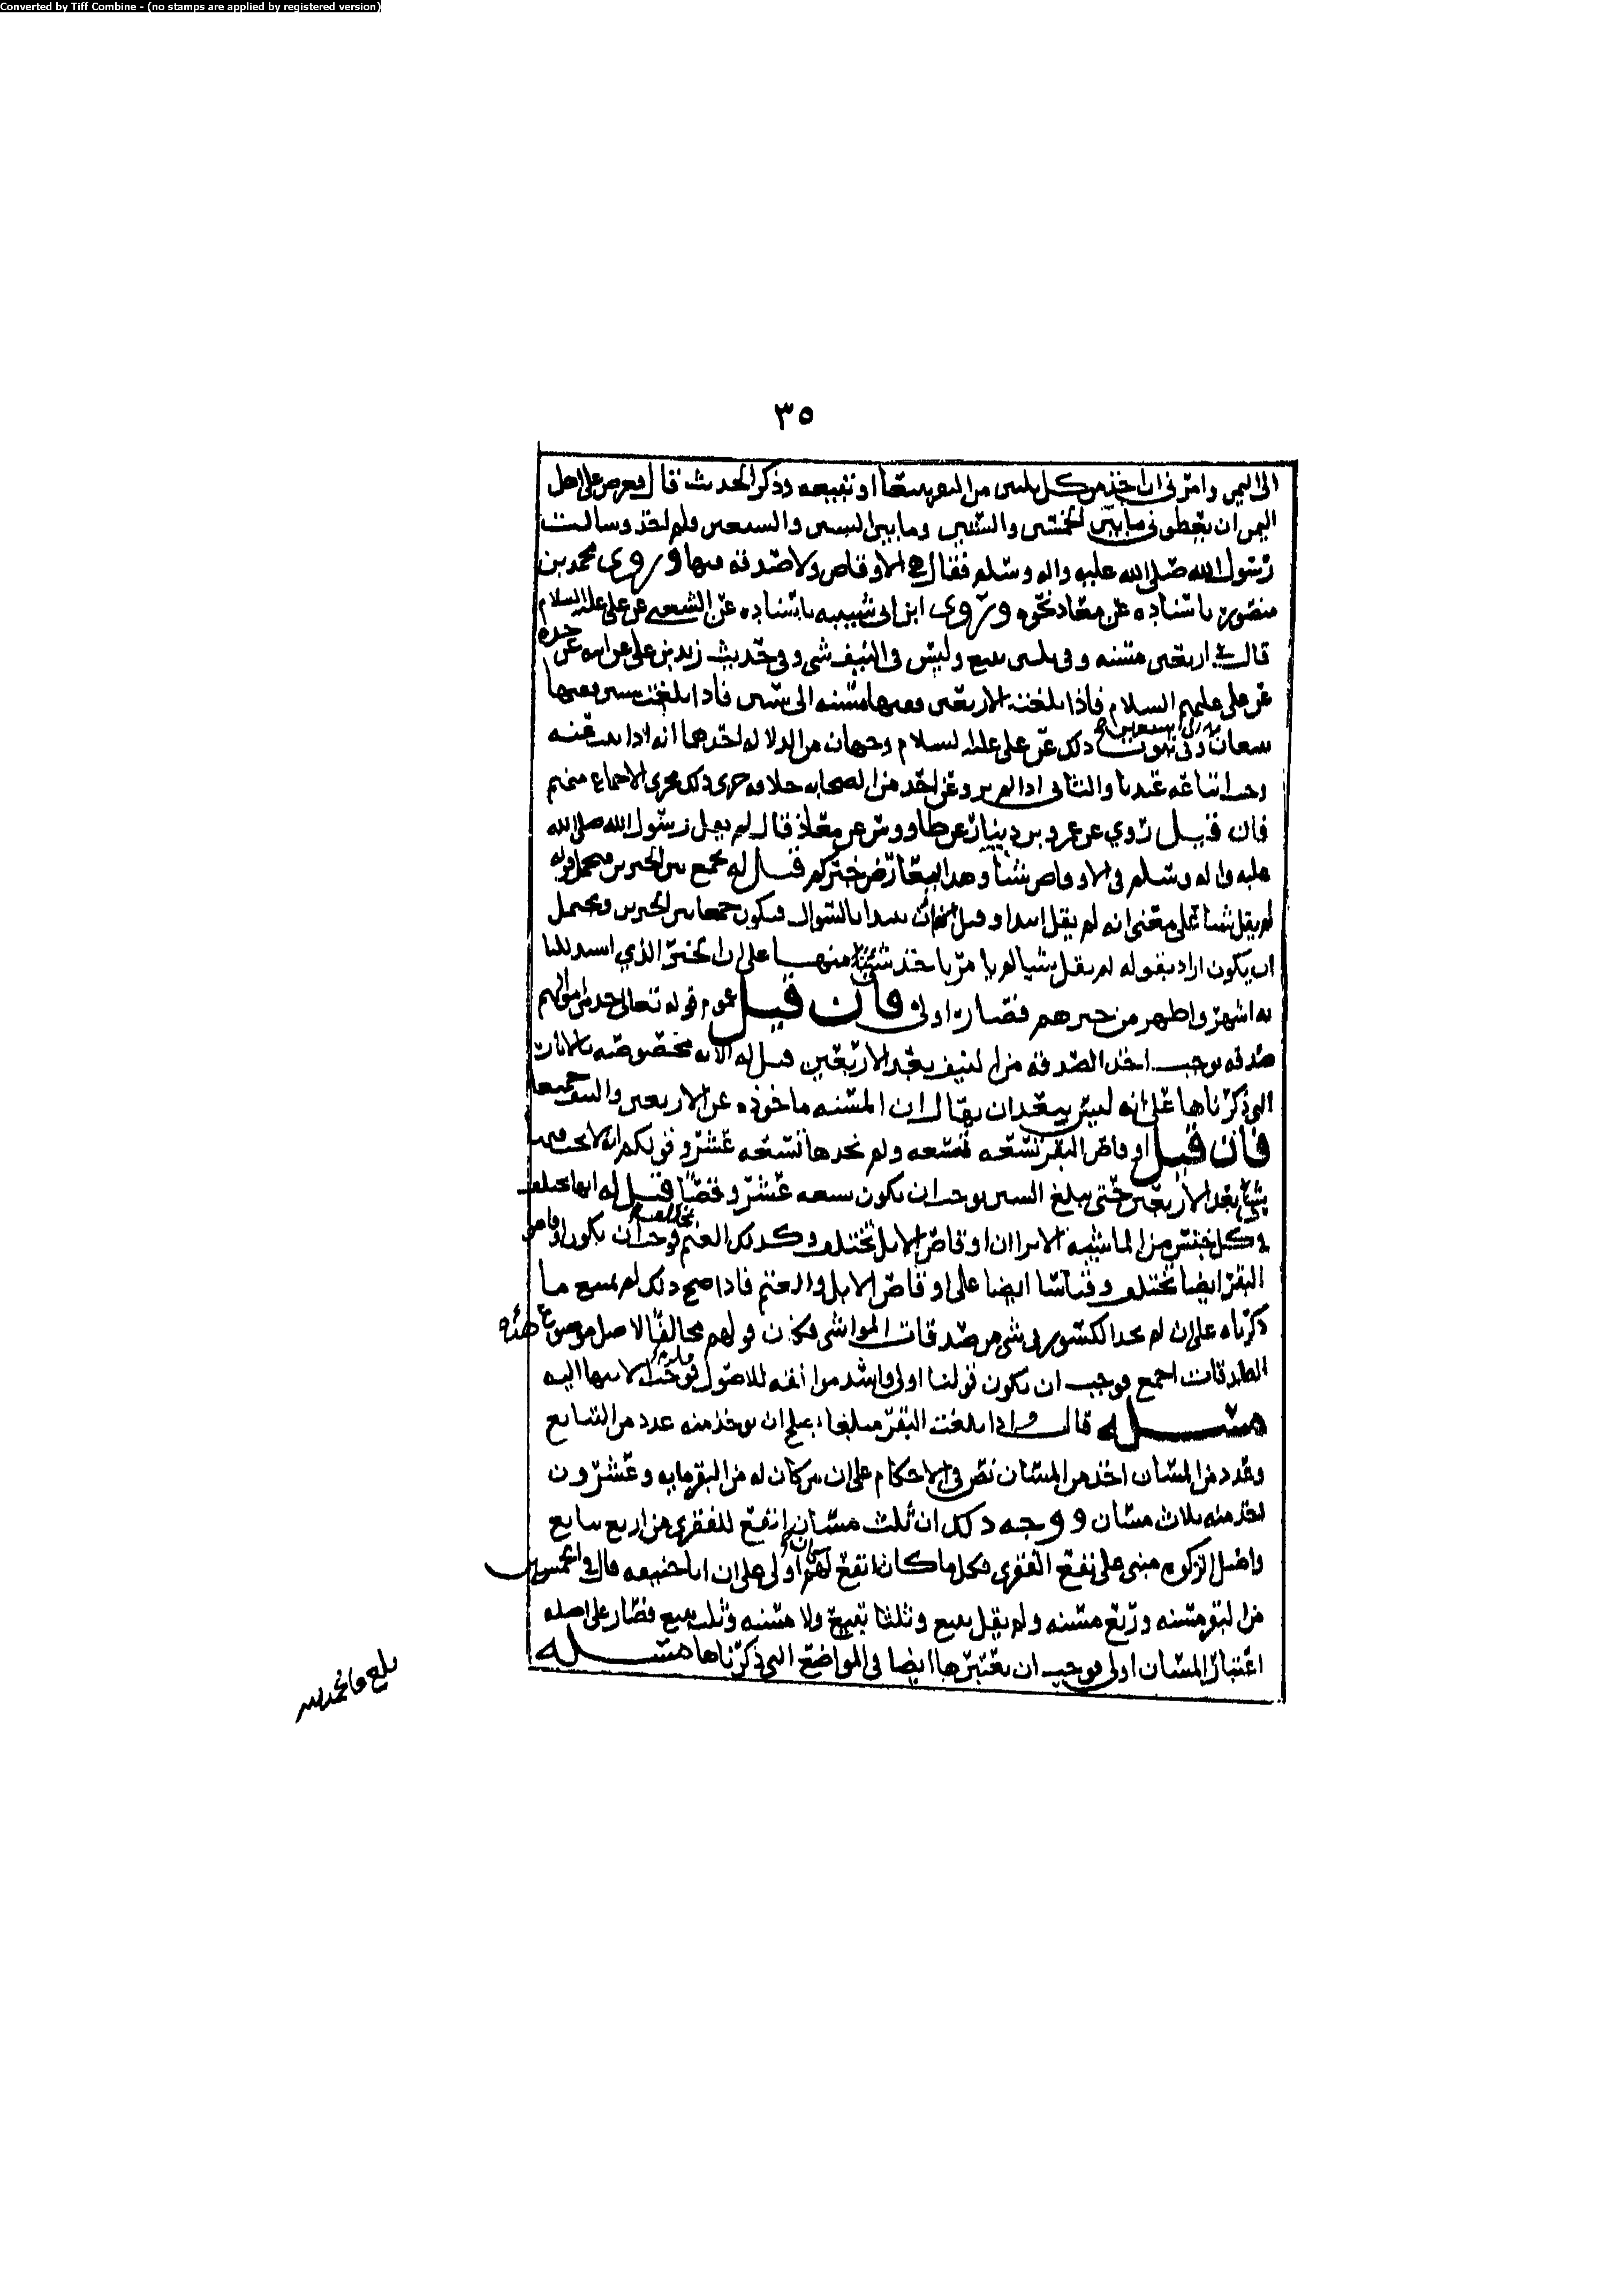 Converted by Tiff Combine - (no stamps are applied by registered version)
٣٥
الى اليمن وامرني ان اخذ من كل ثلثين من البقر تبيعا او تبيعه وذكر الحديث قال فعرض علي اهل
اليمن ان يعطوني ما بين الخمسين والستين وما بين الستين والسبعين ولم اخذ وسالت
رسول الله صلى الله عليه واله وسلم فقال هي الاوقاص ولا صدقه فيها وروى محمد بن
منصور باسناده عن معاذ نحوه وروى ابن ابي شيبه باسناده عن الشعبي عن علي عليه السلام
قال في اربعين مسنه وفي ثلثين تبيع وليس في النيف شي وفي حديث زيد بن علي عن ابيه عن جده
عن علي عليهم السلام فاذا بلغت الاربعين ففيها مسنه الى ستين فاذا بلغت ستين ففيها
تبيعان وفي ثبوت ذلك عن علي عليه السلام وجهان من الدلاله احدهما انه اذا ثبت عنه
وجب اتباعه عندنا والثاني اذا لم يرو عن احد من الصحابه خلافه جرى ذلك مجرى الاجماع منهم
فان قيل روي عن عمرو بن دينار عن طاووس عن معاذ قال لم يقل رسول الله صلى الله
عليه واله وسلم في الاوقاص شيا وهذا يعارض خبركم قيل له نجمع بين الخبرين فنحمل قوله
لم يقل شيا على معنى انه لم يقل ابتدا وقيل بالسوال فيكون جمعا بين الخبرين ويحتمل
ان يكون اراد بقوله لم يقل شيا لم يامر باخذ شي منها على ان الخبر الذي استدللنا
به اشهر واظهر من خبرهم فصار اولى فان قيل عموم قوله تعالى خذ من اموالهم
صدقه يوجب اخذ الصدقه من النيف بعد الاربعين قيل له الايه مخصوصه بالاثار
التي ذكرناها على انه ليس يبعد ان يقال ان المسنه ماخوذه عن الاربعين والنيف جميعا
فان قيل اوقاص البقر تسعه تسعه ولم نجدها تسعه عشر وقولكم انه لا يجب فيها
شي بعد الاربعين حتى يبلغ الستين يوجب ان يكون تسعه عشر وقصا قيل له انها تختلف
في كل جنس من الماشيه الا ترا ان اوقاص الابل تختلف وكذلك الغنم فوجب ان يكون اوقاص
البقر ايضا تختلف وقياسا ايضا على اوقاص الابل والغنم فاذا صح ذلك لم يمتنع ما
ذكرناه على ان لم نجد الكسور في شي من صدقات المواشي فكان قولهم مخالفا لاصل موضوع هذه
الصدقات اجمع فوجب ان يكون قولنا اولى واشد موافقه للاصول
مسله قال واذا بلغت البقر مبلغا يصلح ان يوخذ منه عدد من التبايع
وعدد من المسان اخذ من المسان نص في الاحكام على ان من كان له من البقر مايه وعشرون
اخذ منه ثلاث مسان ووجه ذلك ان ثلث مسان انفع للفقرى من اربع تبايع
واصل الزكوه مبنى على نفع الفقرى فكل ما كان انفع لهم كان اولى على ان ابا حنيفه قال في الخمسين
من البقر مسنه وربع مسنه ولم يقل تبيع وثلثا تبيع ولا مسنه وثلث تبيع فصار على اصله
اعتبار المسان اولى فوجب ان نعتبرها ايضا في المواضع التي ذكرناها مسله
بلغ